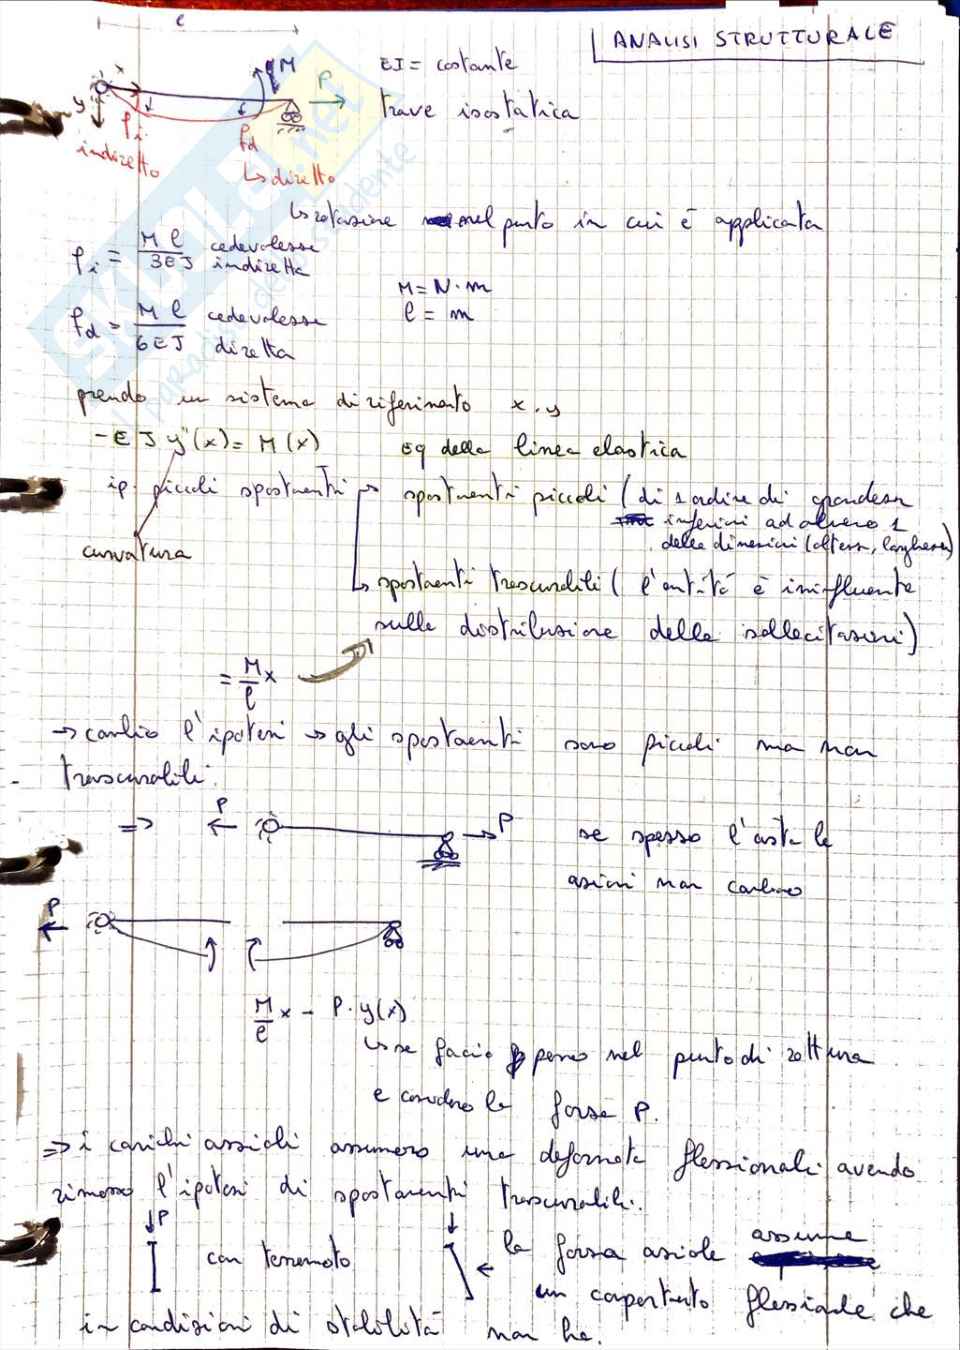 ℓ
ANALISI STRUTTURALE
x M P EI = costante
y φi φd trave isostatica
indiretto ↳ diretto
↳ rotazione nel punto in cui è applicata
φi = Mℓ/3EJ cedevolezze indiretta
M = N·m
φd = Mℓ/6EJ cedevolezze diretta
ℓ = m
prendo un sistema di riferimento x, y
-EJ y''(x) = M(x) Eq della linea elastica
ip. piccoli spostamenti → spostamenti piccoli (di 1 ordine di grandezza
inferiori ad almeno 1
delle dimensioni (altezza, larghezza)
curvatura
↳ spostamenti trascurabili (l'entità è ininfluente
sulle distribuzione delle sollecitazioni)
= M/ℓ x
→ cambio l'ipotesi → gli spostamenti sono piccoli ma non
trascurabili.
⇒ P P se spezzo l'asta le
azioni non cambiano
P
M/ℓ x - P·y(x)
↳ se faccio perno nel punto di rottura
e considero le forze P.
⇒ i carichi assiali assumono una deformata flessionali avendo
rimosso l'ipotesi di spostamenti trascurabili.
↓P con terremoto ↓ ← la forza assiale assume
un comportamento flessionale che
in condizioni di stabilità non ha.
SKUOLA.net
il paradiso dello studente